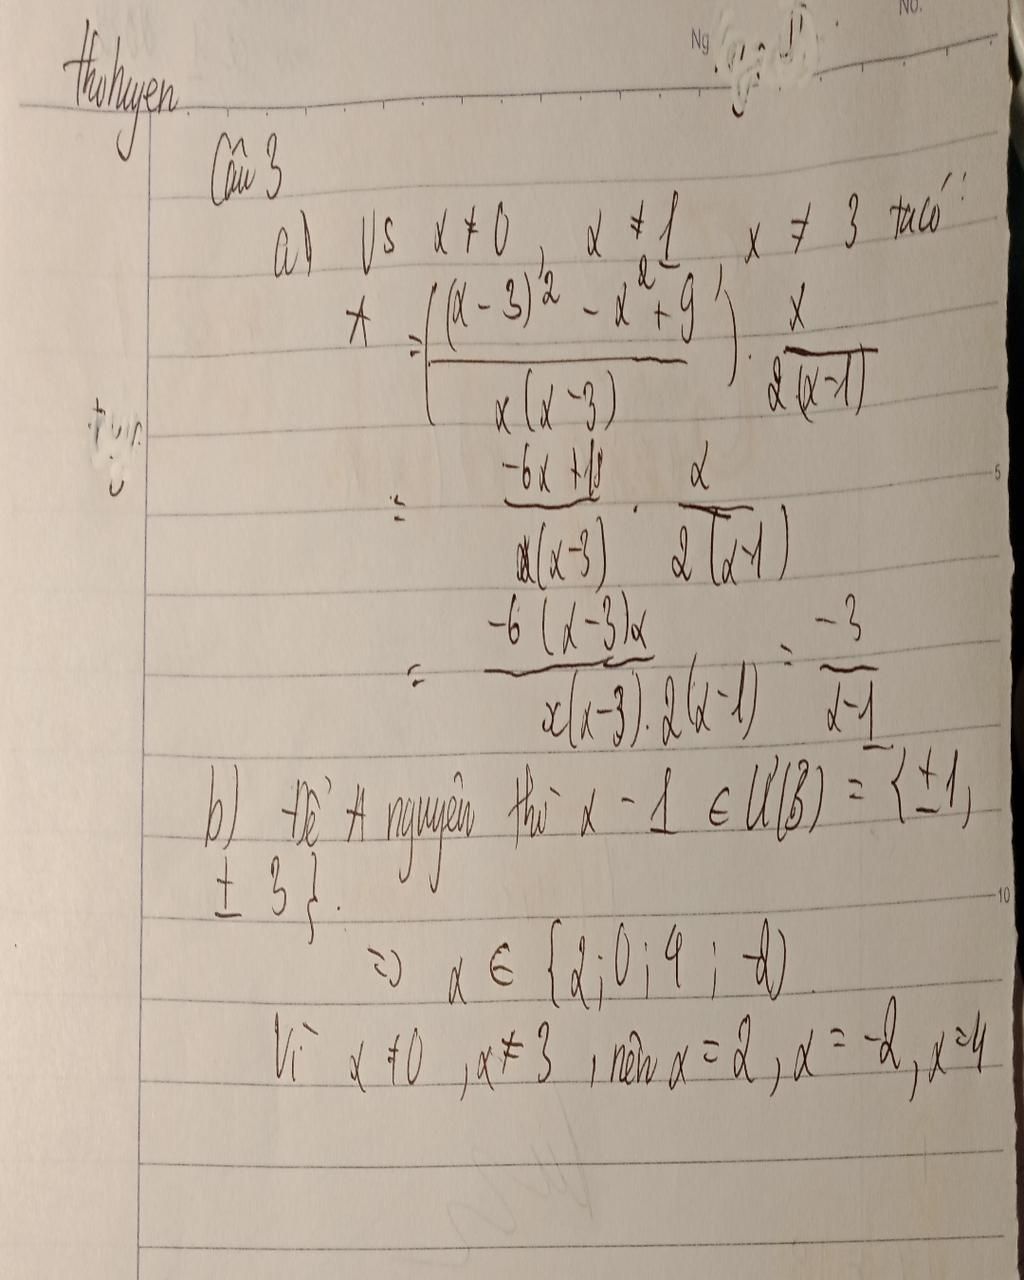 No.
Ng
thohuyen
Câu 3
a) Vs x ≠ 0, x ≠ 1, x ≠ 3 ta có:
A = ( ((x-3)² - x² + 9) / (x(x-3)) ) . x / (2(x-1))
= (-6x + 18) / (x(x-3)) . x / (2(x-1))
= (-6(x-3)x) / (x(x-3).2(x-1)) = -3 / (x-1)
b) Để A nguyên thì x - 1 ∈ Ư(3) = {±1,
± 3}.
5
10
=> x ∈ {2; 0; 4; -2}
Vì x ≠ 0, x ≠ 3, nên x = 2, x = -2, x = 4